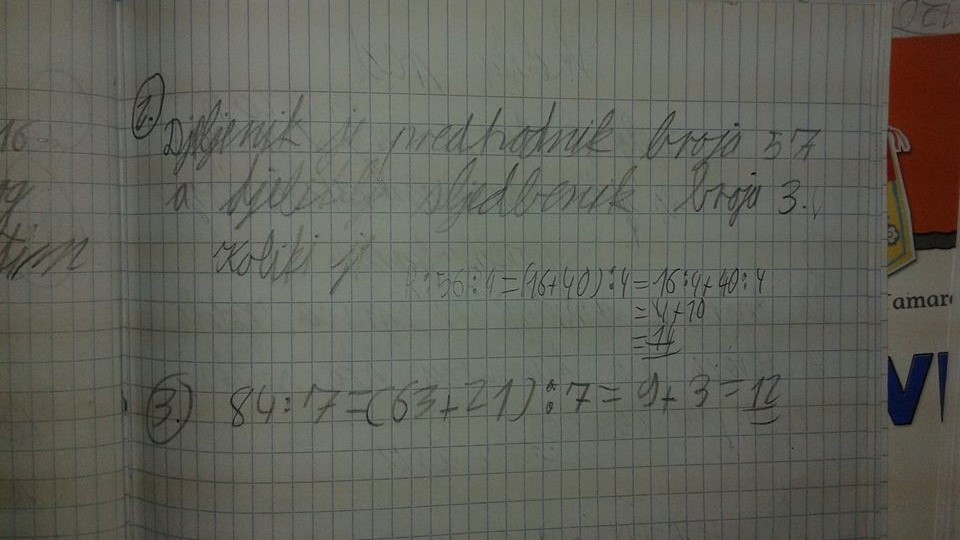 16
2.
Djeljenik je predhodnik broja 57
a sljedbenik broja 3.
Koliki je
56:4=(16+40):4=16:4+40:4
=4+10
=14
3. 84:7=(63+21):7=9+3=12
Tamara
VI